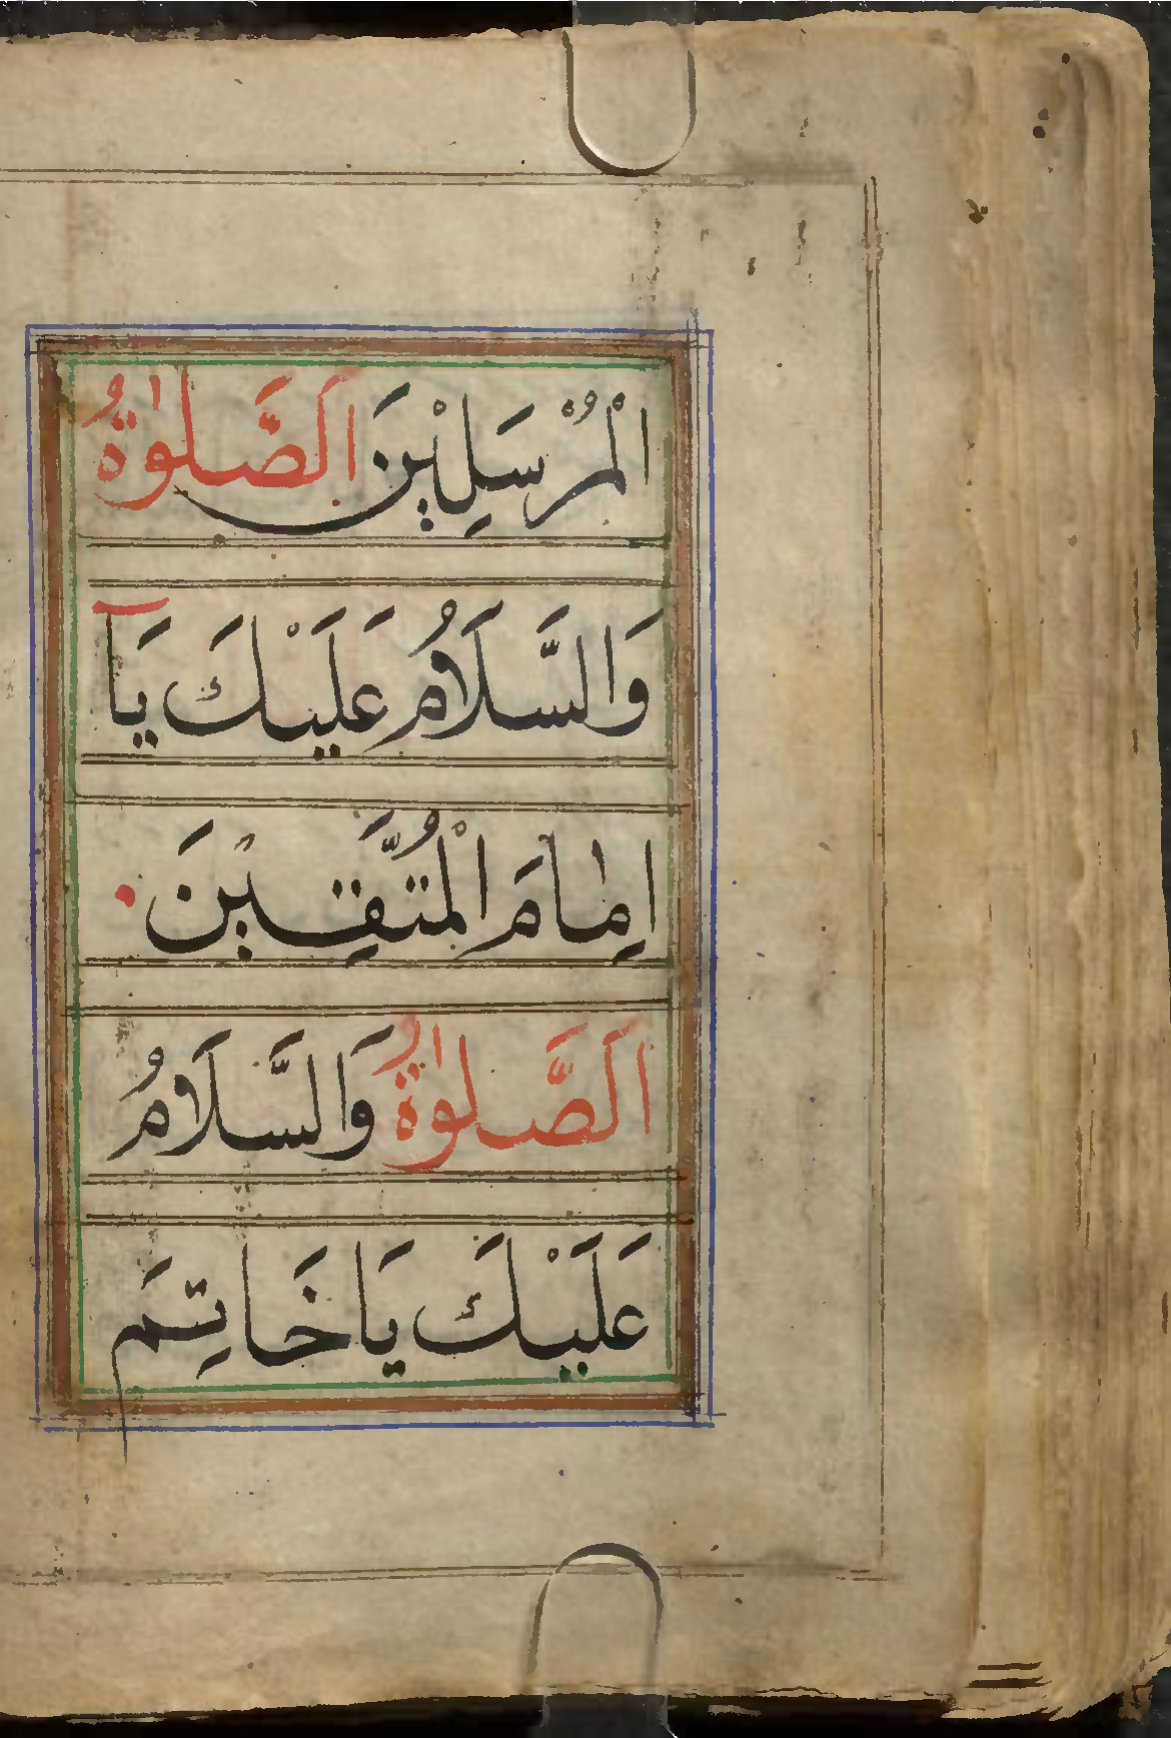 الْمُرْسَلِيْنَ اَلصَّلٰوةُ
وَالسَّلَامُ عَلَيْكَ يَآ
اِمٰامَ الْمُتَّقِيْنَ
اَلصَّلٰوةُ وَالسَّلَامُ
عَلَيْكَ يَا خَاتِمَ